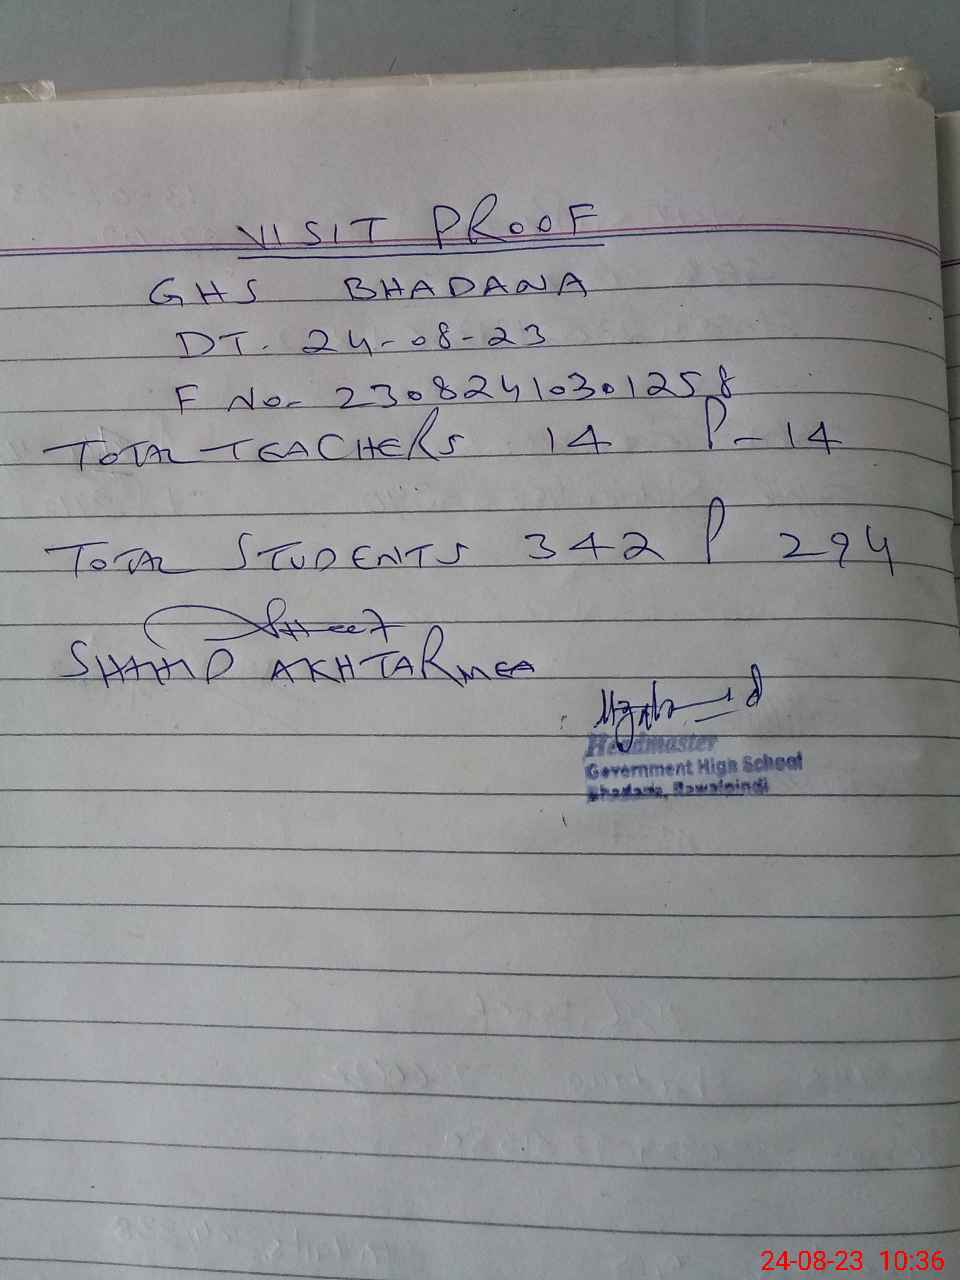 VISIT PROOF
GHS BHADANA
DT. 24-08-23
F No- 23082410301258
TOTAL TEACHERS 14 P-14
TOTAL STUDENTS 342 P 294
SHAHID AKHTAR MEA
Headmaster
Government High School
Bhadana, Rawalpindi
24-08-23 10:36